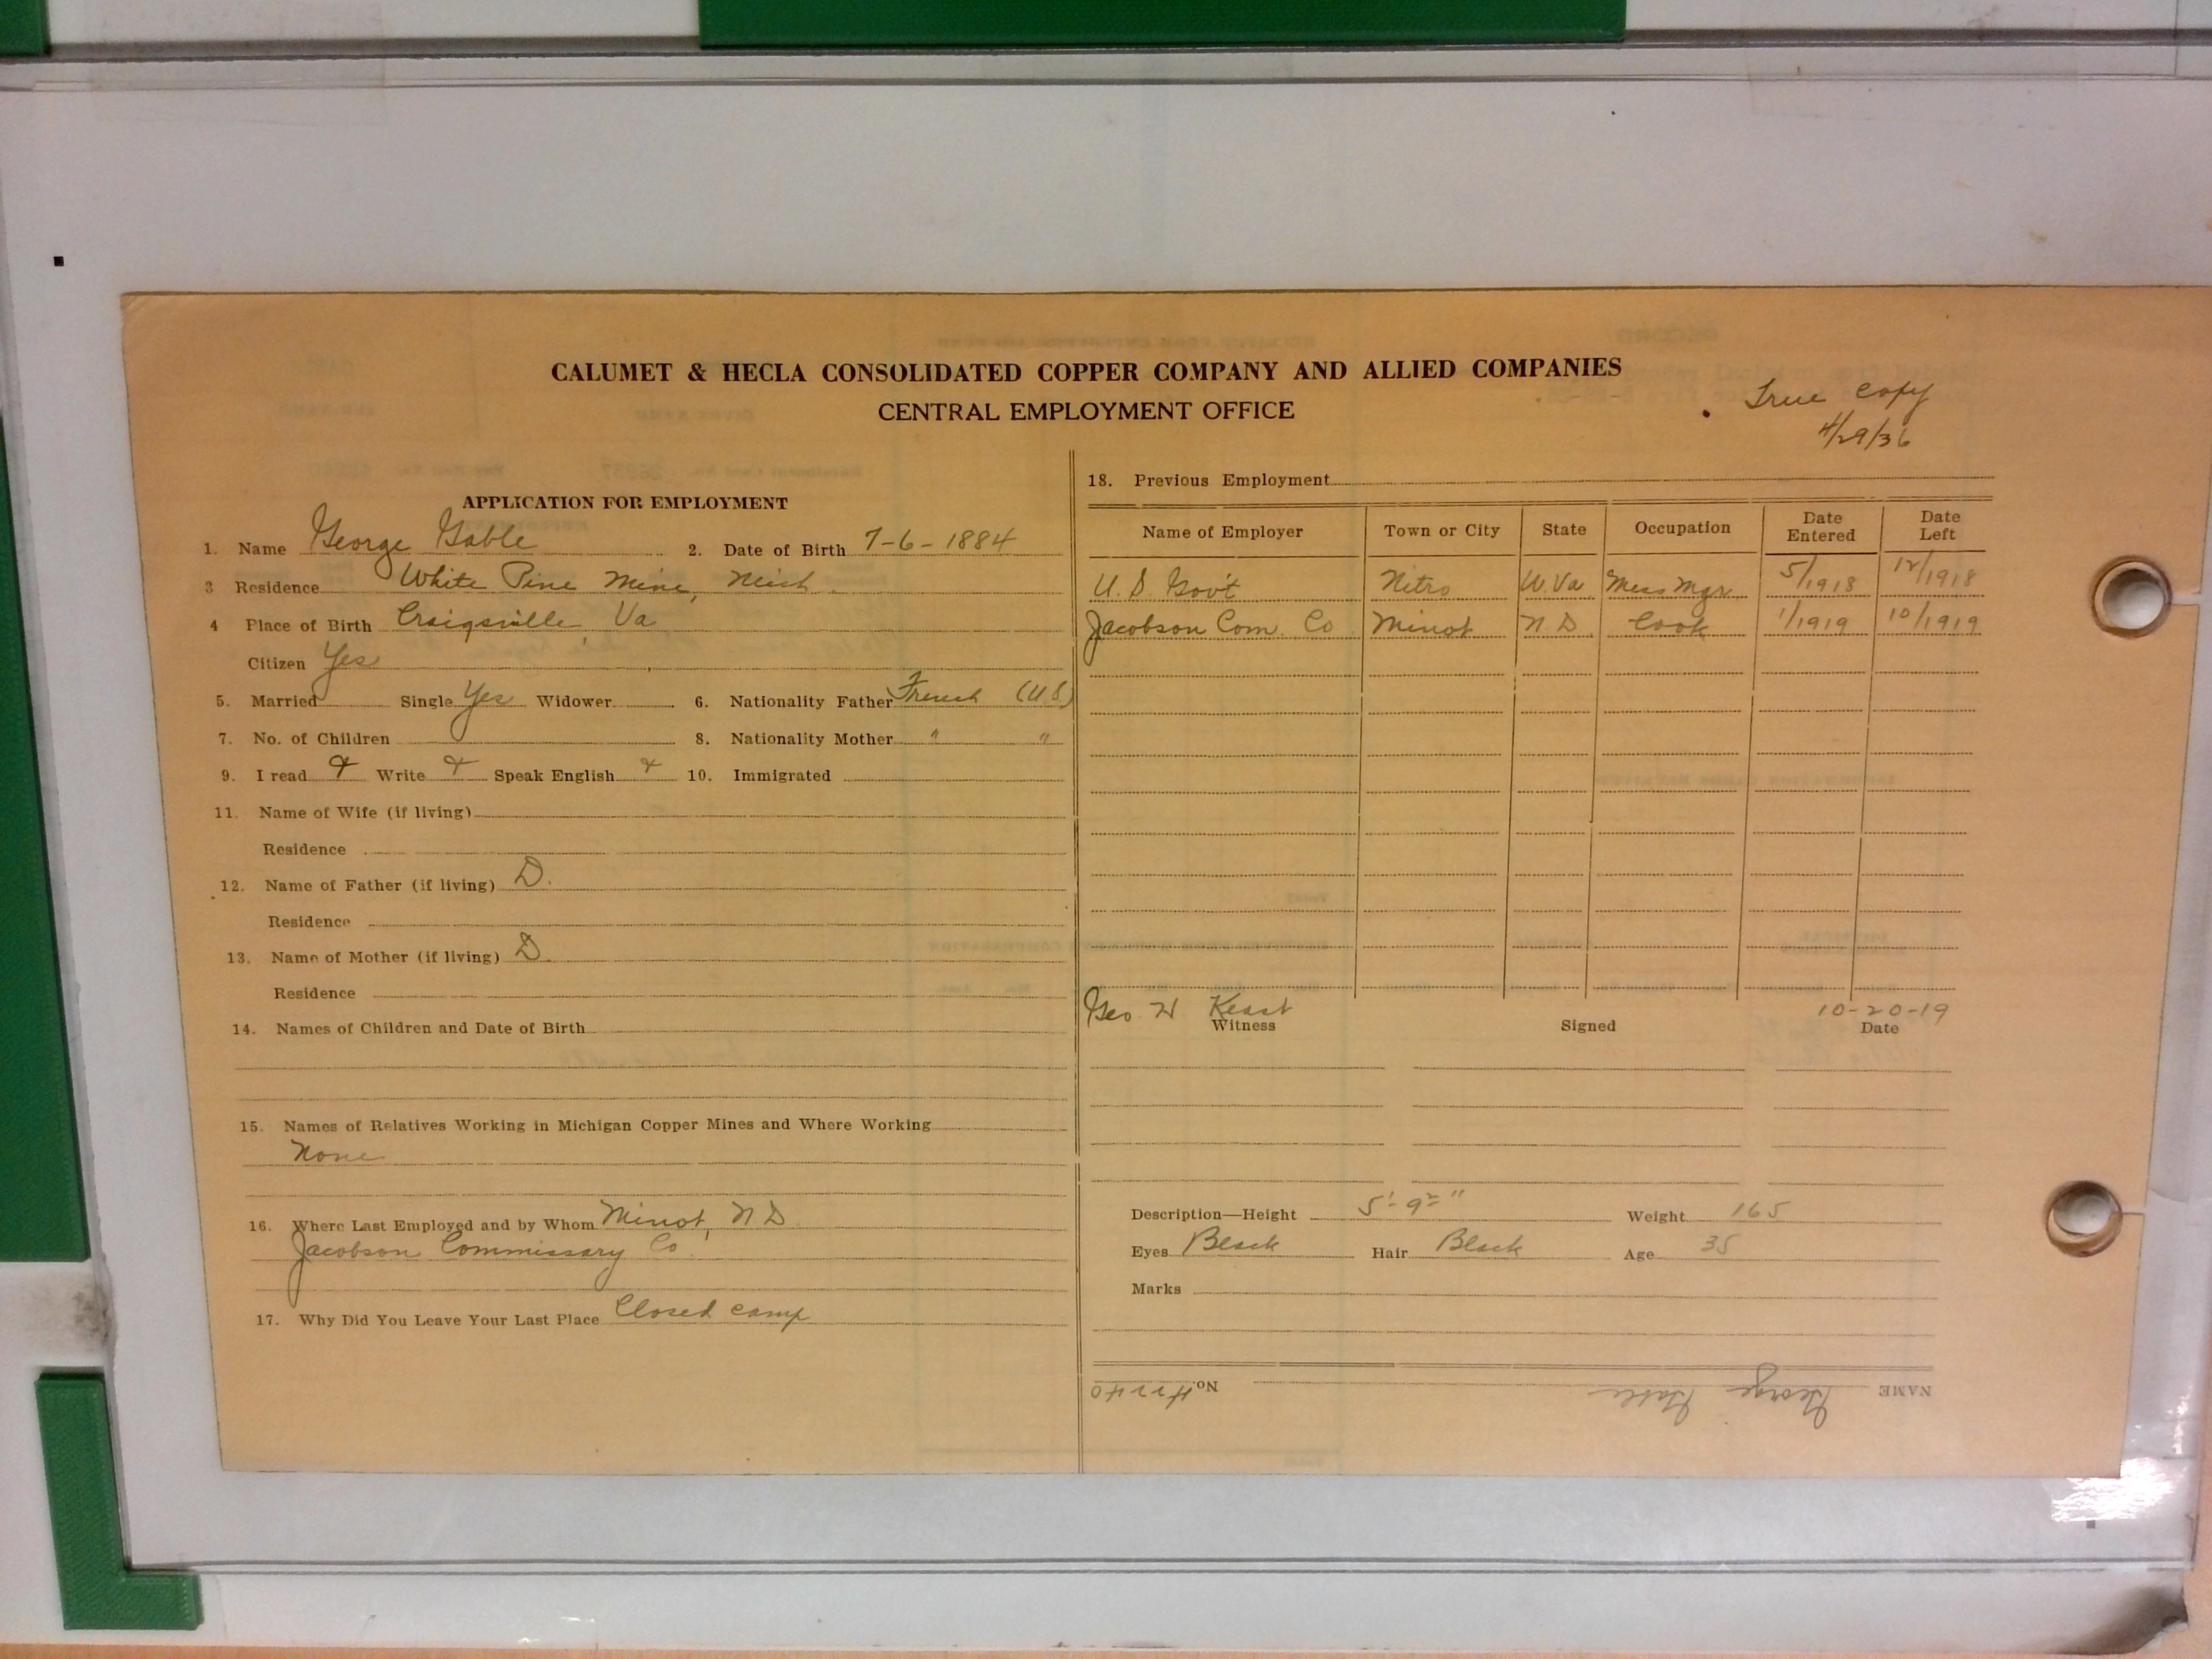 CALUMET & HECLA CONSOLIDATED COPPER COMPANY AND ALLIED COMPANIES
CENTRAL EMPLOYMENT OFFICE
True copy
4/29/36
APPLICATION FOR EMPLOYMENT
1. Name George Gable 2. Date of Birth 7-6-1884
3 Residence White Pine Mine, Mich.
4 Place of Birth Craigsville, Va
Citizen Yes
5. Married Single Yes Widower 6. Nationality Father French (U S)
7. No. of Children 8. Nationality Mother " "
9. I read Write Speak English 10. Immigrated
11. Name of Wife (if living)
Residence
12. Name of Father (if living) D.
Residence
13. Name of Mother (if living) D.
Residence
14. Names of Children and Date of Birth
15. Names of Relatives Working in Michigan Copper Mines and Where Working
None
16. Where Last Employed and by Whom Minot, N D
Jacobson Commissary Co.
17. Why Did You Leave Your Last Place Closed camp
18. Previous Employment
Name of Employer Town or City State Occupation Date Entered Date Left
U. S. Gov't Nitro W. Va Mess Mgr 5/1918 12/1918
Jacobson Com. Co Minot N D Cook 1/1919 10/1919
Geo H Keast 10-20-19
Witness Signed Date
Description—Height 5'-9" Weight 165
Eyes Black Hair Black Age 35
Marks
NAME George Gable No. 42240